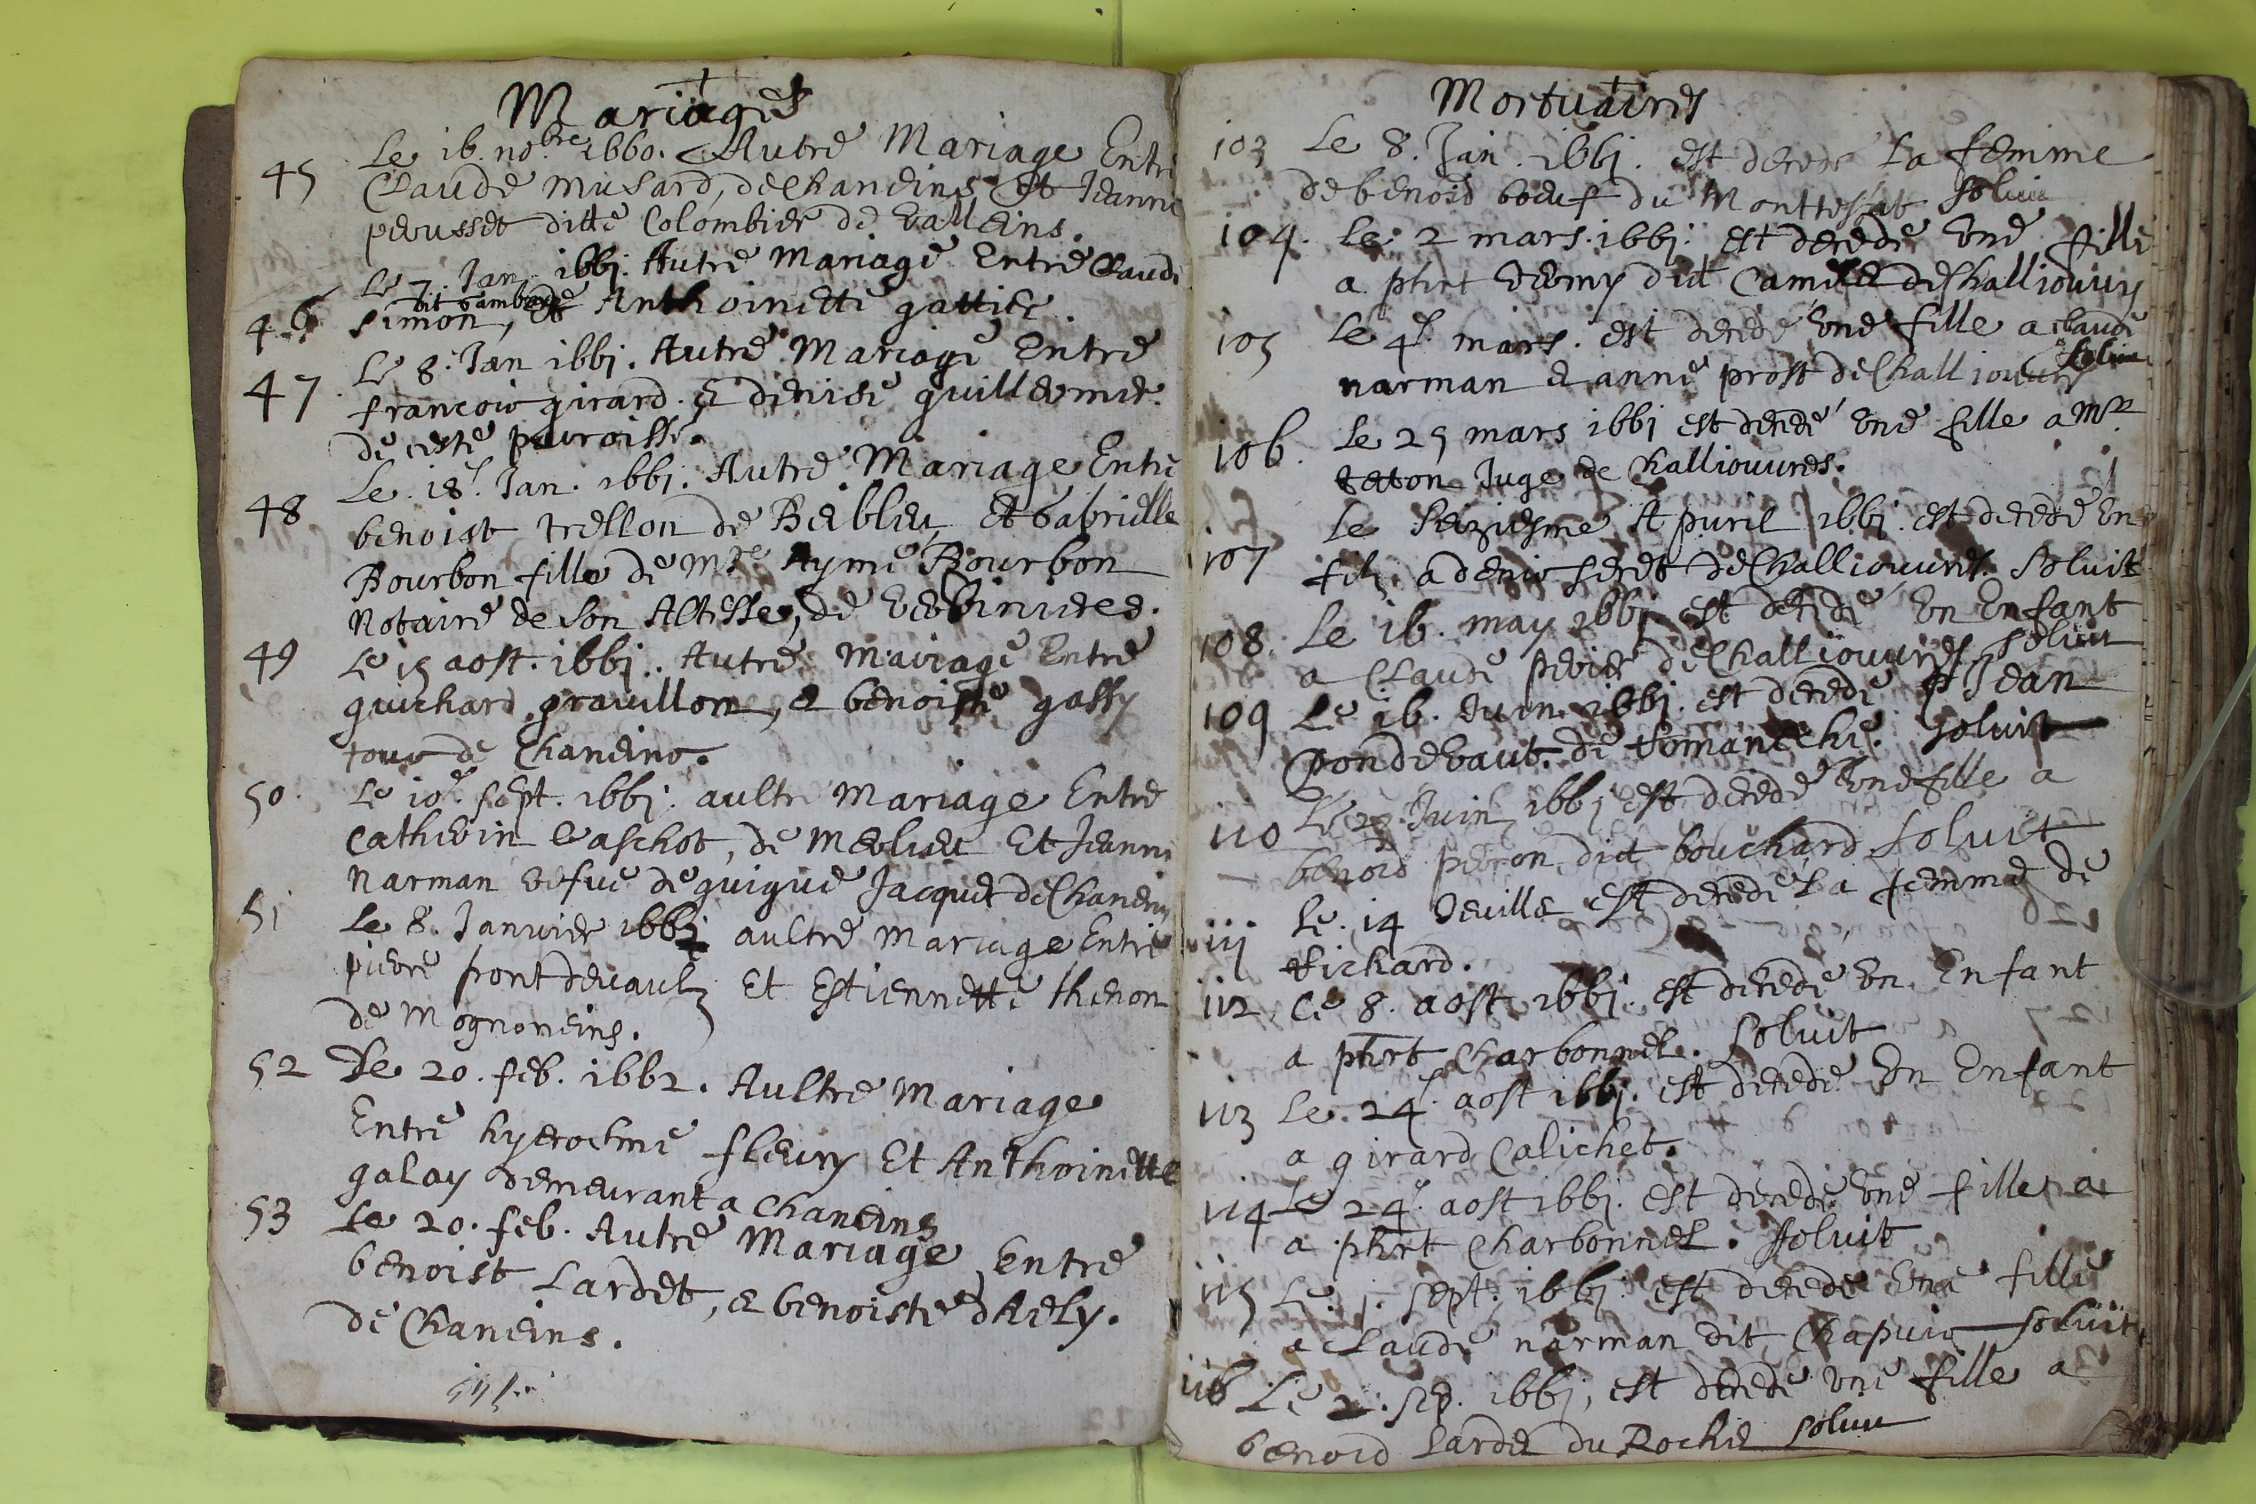 Mariages
45 Le 16. nobre 1660. Autre Mariage Entre
Claude musard, de Chaneins Et Jeanne
perusset ditte Colombier de Valleins.
Le 7. Jan. 1661. Autre Mariage Entre Claude
dit Gambade
46 Simon, Et Anthoinette gattier.
Le 8. Jan 1661. Autre Mariage Entre
47 francois girard. & denise guillermie.
de ceste parroisse.
Le. 18. Jan. 1661. Autre Mariage Entre
48 benoist trellon de Berbleu, Et Gabrielle
Bourbon fille de Mre Ayme Bourbon
Notaire de Son Altesse, de
49 Le 15 aost. 1661. Autre Mariage Entre
guichard gravillon, & benoiste gassy
tous de Chaneins.
50. Le 10e. sept. 1661. aultre Mariage Entre
Catherin Vaschot, de Merlieu Et Jeanne
Narman vefve de guigue Jacquet de Chaneins
51 Le 8. Janvier 1662 aultre Mariage Entre
pierre frontdevaulz Et Estiennette thenon
de Mognoneins.
52 Le 20. feb. 1662. Aultre Mariage
Entre hyerosme fleury Et Anthoinette
galay demeurant a Chaneins
53 Le 20. feb. Autre Mariage Entre
benoist Lardet, & benoiste dhely.
de Chaneins.
Mortuaires
103 Le 8. Jan. 1661. est decede La femme
de benoid boeuf du Solvit
104. Le 2 mars. 1661. est decede Une fille
a phrt dict Camus de Challiouvres
105 Le 4e. mars. est decede Une fille a claude
narman & anne prost de Challiouvres Solvit
106. Le 25 mars 1661 est decede une fille a Mr.
taton Juge de Challiouvres.
Le Seziesme Apvril 1661. est decede un
107 filz a denis seret de Challiouvres. Solvit
108. Le 16. may 1661. est decede Un Enfant
a Claude perier de Challiouvres Solvit
109 Le 16. Juin 1661. est decede Jean
fondevaut. de Romaneche. Solvit
Le 22. Juin 1661 est decede Une fille a
110 benoid perron dict bouchard Solvit
111 Le. 14 Jeuille est decede La femme de
Richard.
112 Le 8. aost 1661. est decede Un Enfant
a phrt Charbonnel. Solvit
113 Le. 24e. aost 1661. est decede Un Enfant
a girard Calichet.
114 Le 24e. aost 1661. est decede Une fille a
a phrt Charbonnel. Solvit
115 Le. 1. sept. 1661. est decede Une fille
a Claude narman dit Chapuis Solvit
116 Le 2. sep. 1661, est decede une fille a
benoid Lardet du Roche Solvit